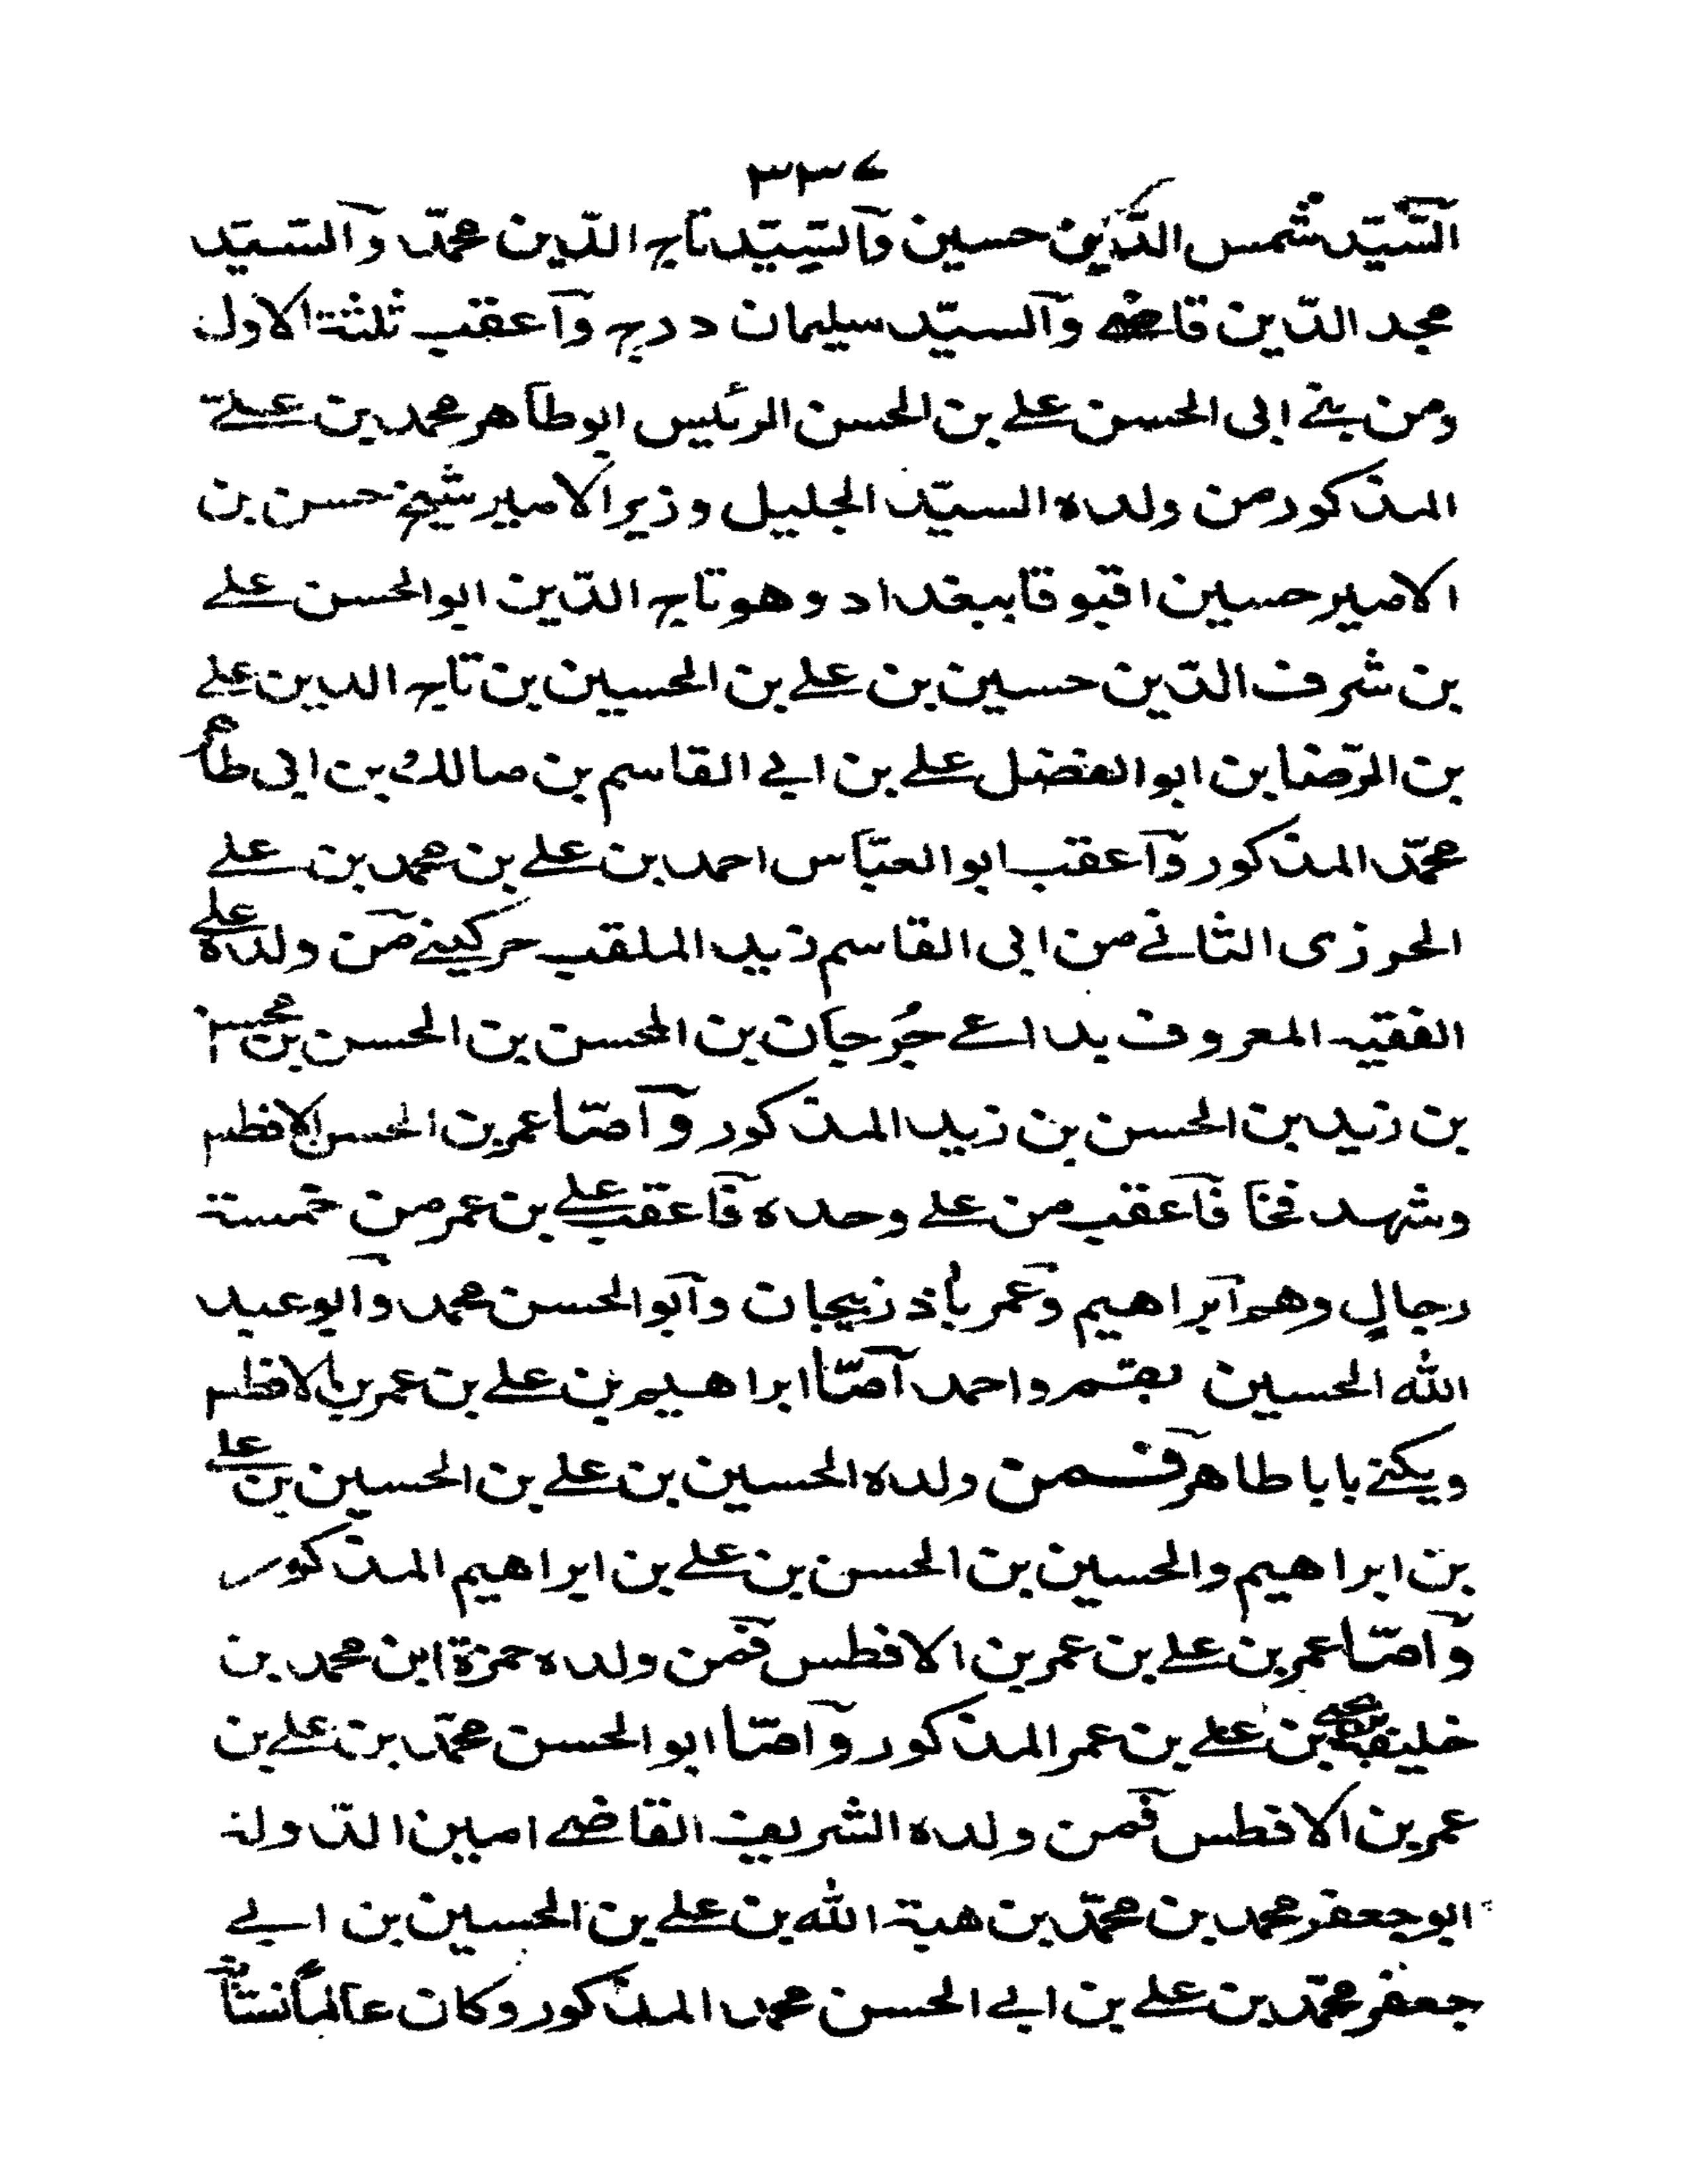 ٣٣٤
السّيّد شمس الدّين حسين والسّيّد تاج الدّين محمّد والسّيّد
مجد الدّين قاضے والسيّد سليمان درج واعقب ثلثة الاول
ومن بنے ابى الحسن علے بن الحسن الرئيس ابو طاهر محمد بن علے
المذكور من ولده السيّد الجليل وزير الامير شيخ حسن بن
الامير حسين اقبوقا ببغداد وهو تاج الدّين ابو الحسن علے
بن شرف الدّين حسين بن علے بن الحسين بن تاج الدين علے
بن الرّضا بن ابو الفضل علے بن ابے القاسم بن مالك بن ابى طاهر
محمّد المذكور واعقب ابو العبّاس احمد بن علے بن محمد بن علے
الحرزى الثانے من ابى القاسم زيد الملقب حركينے من ولده علے
الفقيه المعروف بداعے جُرجان بن المحسن بن الحسن بن محسن
بن زيد بن الحسن بن زيد المذكور وامّا عمر بن الحسن الافطس
وشهد فخا فاعقب من علے وحده فاعقب علے بن عمر من خمسة
رجال وهم ابراهيم وعمر باذزبيجان وابو الحسن محمد وابو عبد
الله الحسين بقم واحمد امّا ابراهيم بن علے بن عمر بن الافطس
ويكنے بابا طاهر فمن ولده الحسين بن علے بن الحسين بن علے
بن ابراهيم والحسين بن الحسن بن علے بن ابراهيم المذكور
وامّا عمر بن علے بن عمر بن الافطس فمن ولده حمزة ابن محمد بن
خليفة بن علے بن عمر المذكور وامّا ابو الحسن محمّد بن علے بن
عمر بن الافطس فمن ولده الشريف القاضے امين الدّولة
ابو جعفر محمد بن محمّد بن هبة الله بن علے بن الحسين بن ابے
جعفر محمّد بن علے بن ابے الحسن محمد المذكور وكان عالمًا نسّابة